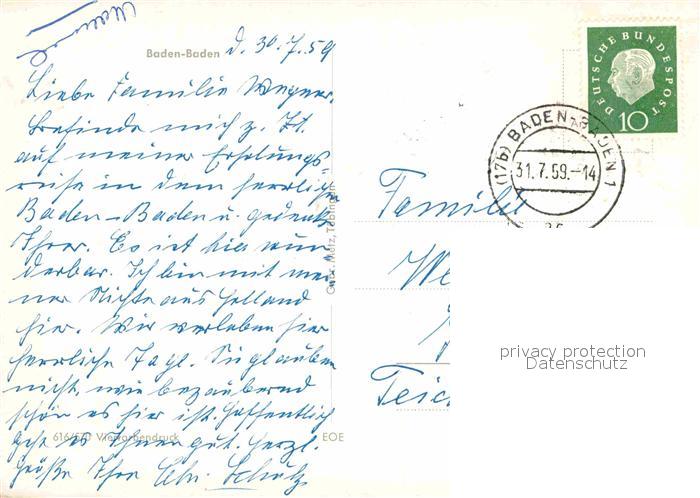 Baden-Baden d. 30.7.59
Liebe Familie Wegner.
Befinde mich z. Zt.
auf meiner Erholungs-
reise in dem herrlichen
Baden-Baden u. gedenke
Ihrer. Es ist hier wun
derbar. Ich bin mit mei
ner Nichte aus Holland
hier. Wir verleben hier
herrliche Tage. Sie glauben
nicht, wie bezaubernd
schön es hier ist. Hoffentlich
geht es Ihnen gut. Herzl.
Grüße Ihre Chr. Scholz
616/570 Vierfarbendruck EOE
Gebr. Metz, Tübingen
DEUTSCHE BUNDESPOST
10
(17b) BADEN-BADEN 1
31.7.59.-14
Familie
We
Teic
privacy protection
Datenschutz